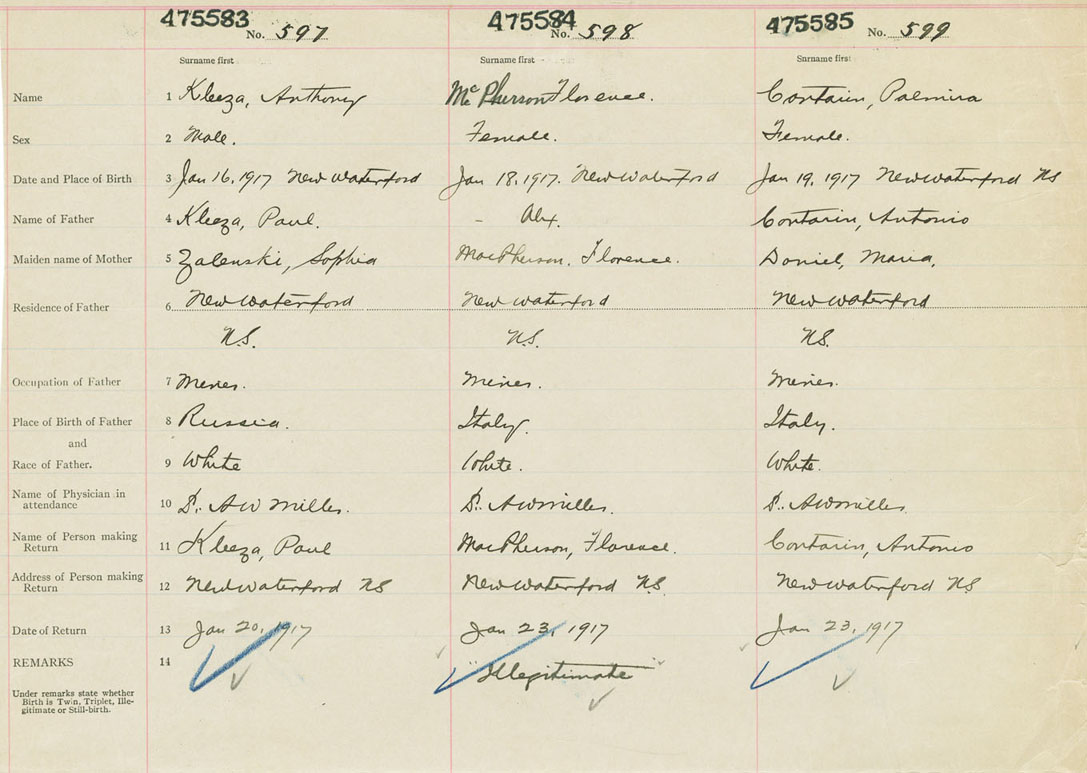 475583 475584 475585
No. 597 No. 598 No. 599
Surname first Surname first Surname first
Name 1 Kleeza, Anthony McPherson Florence. Contarin, Palmira
Sex 2 Male. Female. Female.
Date and Place of Birth 3 Jan 16, 1917 New Waterford Jan 18, 1917. New Waterford Jan 19, 1917 New Waterford NS
Name of Father 4 Kleeza, Paul. - Alex. Contarin, Antonio
Maiden name of Mother 5 Zalenski, Sophia MacPherson, Florence. Daniel, Maria,
Residence of Father 6 New Waterford New Waterford New Waterford
N.S. N.S. NS.
Occupation of Father 7 Miner. Miner. Miner.
Place of Birth of Father 8 Russia. Italy. Italy.
and
Race of Father. 9 White White. White.
Name of Physician in
attendance 10 D. AW Miller. D. AW Miller. D. AW Miller.
Name of Person making
Return 11 Kleeza, Paul MacPherson, Florence. Contarin, Antonio
Address of Person making
Return 12 New Waterford NS New Waterford N.S. New Waterford NS
Date of Return 13 Jan 20, 1917 Jan 23, 1917 Jan 23, 1917
REMARKS 14 "Illegitimate"
Under remarks state whether
Birth is Twin, Triplet, Ille-
gitimate or Still-birth.